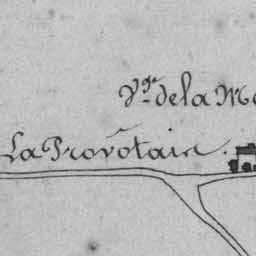 Vge de la Mo
La Provôtaie